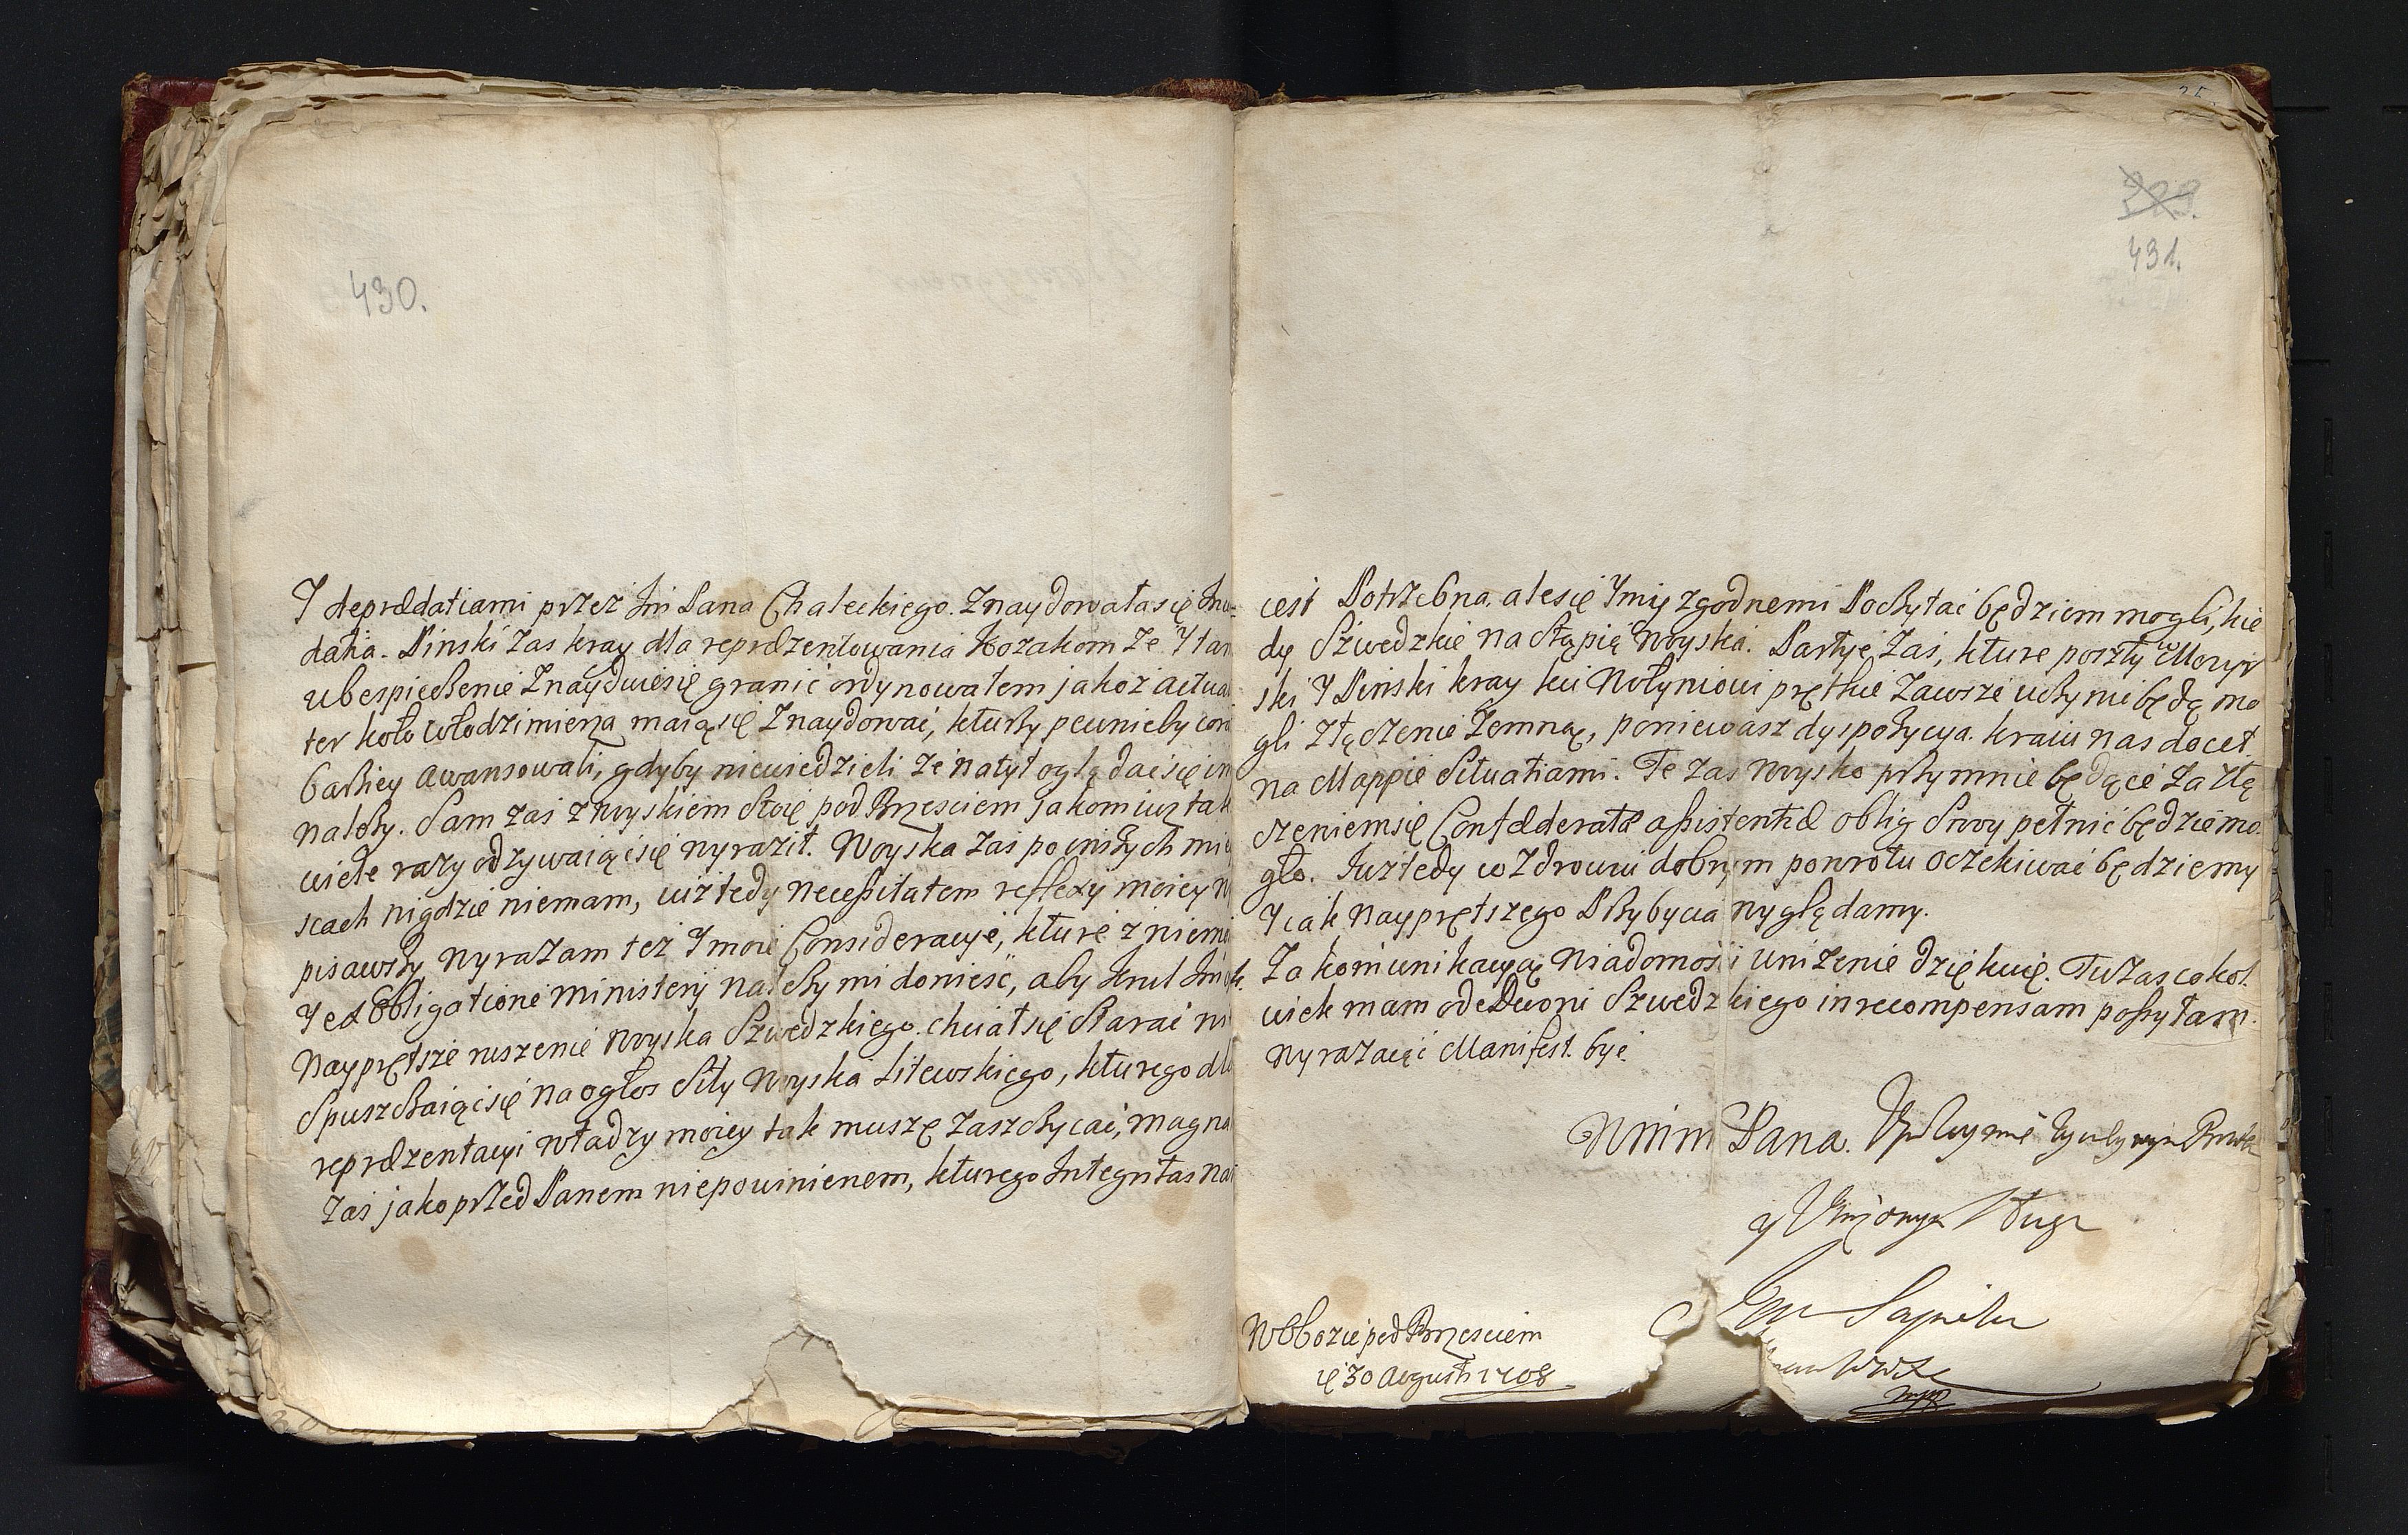 430.
Y deprædatiami przez Im Pana Chaleckiego. Znaydowała się Inu-
datia. Pinski zas kray dla repræzentowania Kozakom ze Y tam
ubespieczenie Znayduie się granic ordynowałem jakoż actua
ter koło Włodzimierza maią się Znaydować, kturzy pewnieby
barziey awansowali, gdyby niewiedzieli że natył oglądać się
należy. Sam zaś z woyskiem Stoię pod Brzesciem jakom iuz tak
wiele razy odzywaiąc się wyraził. Woyska zaś po inszych miey
scach nigdzie niemam, iuż tedy necessitatem reflexy moiey
pisawszy wyrażam też Y moie Consideracyie, kture z niemi
Y ex Obligatione ministerÿ należy mi donieść, aby Krul Im
Nayprętsze ruszenie woyska Szwedzkiego chciał się starać
Spuszczaiąc się na ogłos Siły Woyska Litewskiego, kturego dla
repræzentacyi władzy moiey tak muszę zaszczycać,
zaś jako przed Panem niepowinienem, kturego Integritas
329.
431.
iest Potrzebna. ale się Y my z godnemi Poczytać będziem mogli, kie
dy Szwedzkie nastąpią Woyska. Partye, zaś, kture poszły w Mozyr
ski Y Pinski kray kui Wołyniowi prętkie zawsze uczynić będą mo
gli złączenie zemną, poniewasz dyspozycya. kraiu nas docet
na Mappie Situatiami. Te zas Woysko przy mnie będące za złą
czeniem się Confæderatæ assistentiæ oblig Swoy pełnić będzie mo
gło. Iuz tedy w zdrowiu dobrym powrotu oczekiwać będziemy
Y iak Nayprętszego Przybycia wyglądamy.
Za komunikacyą Wiadomosci unizenie dziękuię. Tu zas cokol.
wiek mam ode Dwoni Szwedzkiego in recompensam posyłam.
Wyrazaiąc Manifest. być.
WMM Pana.
y Uniżonym Sługą
Sapieha
W Obozie pod Brzesciem
30 Augusti 1708
mpp